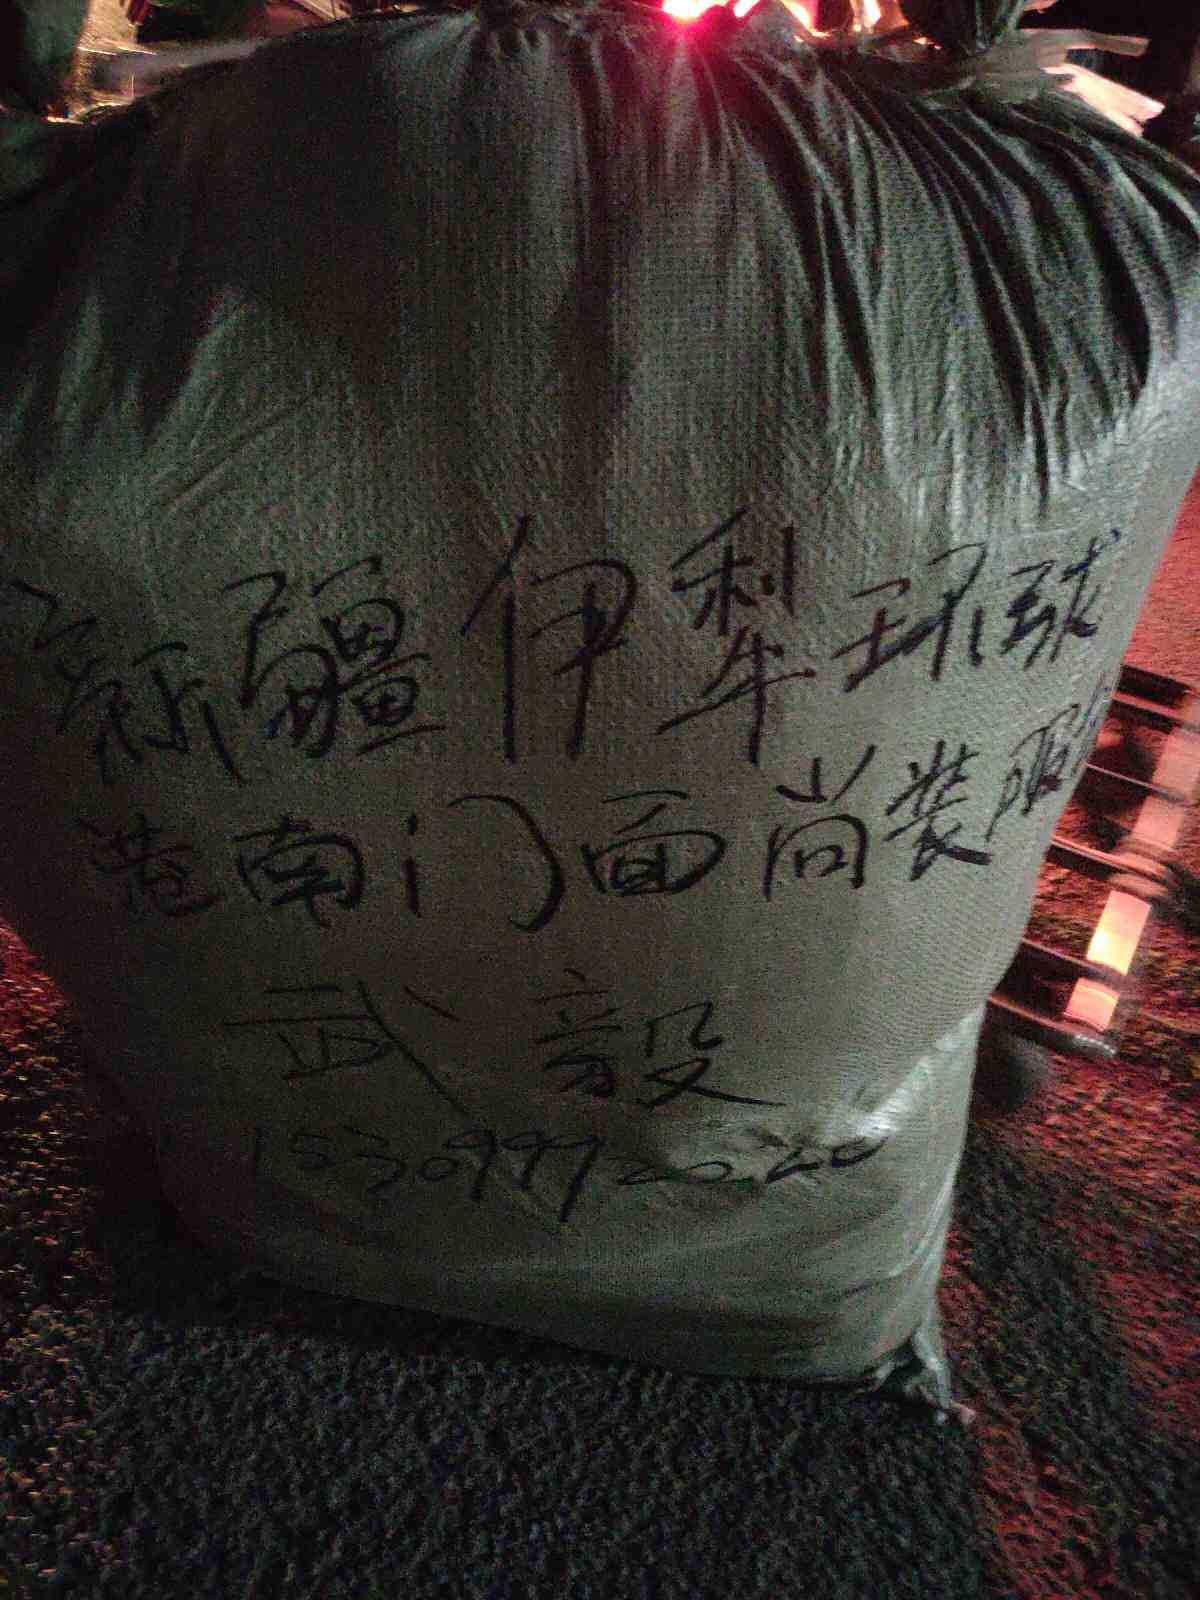 新疆伊犁环球
港南门面尚装服
武毅
15309992020